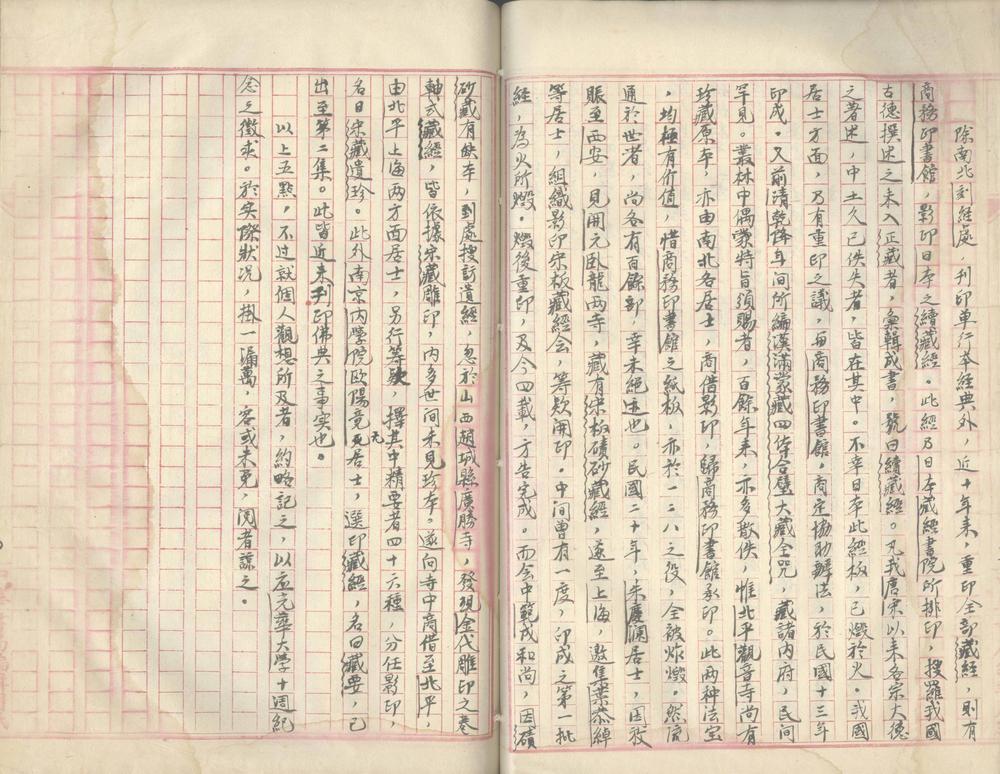 除南北刻經處，刊印單行本經典外，近十年來，重印全部藏經，則有
商務印書館，影印日本之續藏經。此經乃日本藏經書院所排印，搜羅我國
古德撰述之未入正藏者，彙輯成書，號曰續藏經。凡我唐宋以來各宗大德
之著述，中土久已佚失者，皆在其中。不幸日本此經板，已燬於火。我國
居士方面，乃有重印之議，毋商務印書館。商定協助辦法，於民國十三年
印成。又前清乾隆年间所編漢滿蒙藏四体合璧大藏全咒，藏諸內府，民间
罕見。叢林中偶蒙特旨須賜者，百餘年来，亦多散佚，惟北平觀音寺尚有
珍藏原本，亦由南北各居士，商借影印，歸商務印書館承印。此两种法宝
，均極有价值，惜商務印書館之紙板，亦於一二八之役，全被炸燬。然流
通於世者，尚各有百餘部，幸未絕迹也。民國二十年，朱慶澜居士，因放
賬至西安，見開元卧龍两寺，藏有宋板磧砂藏經，遂至上海，邀集葉恭綽
等居士，組織影印宋板藏經会，筹欵開印。中间曾有一度，印成之第一批
經，為火所燬。燬後重印，及今四載，方告完成。而会中範成和尚，因磧
砂藏有缺本，到處搜訪遺經，忽於山西趙城縣廣勝寺，發現金代雕印之卷
軸式藏經，皆依據宋藏雕印，內多世间未見珍本。遂向寺中商借至北平，
由北平上海两方面居士，另行筹欵，擇其中精要者四十六種，分任影印，
名曰宋藏遺珍。此外南京內學院欧陽竟无居士，選印藏經，名曰藏要，已
出至第二集。此皆近来刊印佛典之事实也。
以上五點，不过就個人觀想所及者，約略記之，以应光華大學十週紀
念之徵求。於实際狀况，掛一漏萬，容或未免，閱者諒之。